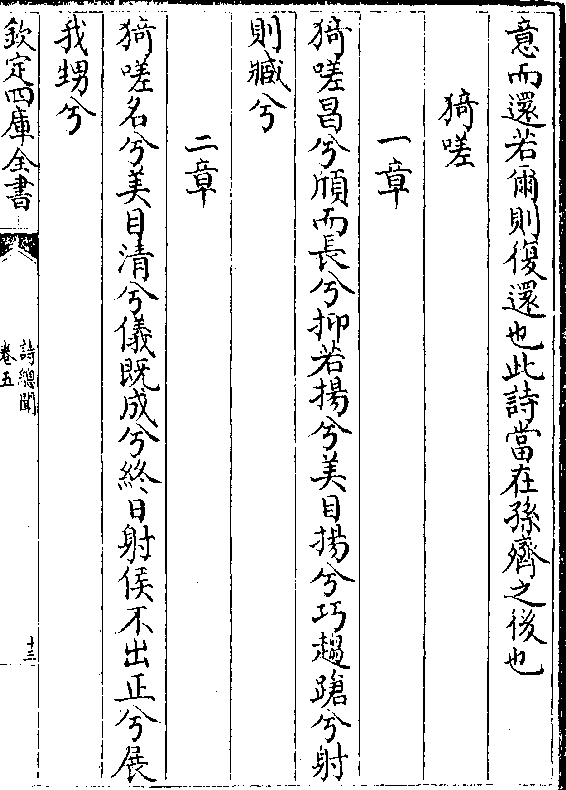 意而還若爾則復還也此詩當在孫齊之後也
猗嗟
一章
猗嗟昌兮頎而長兮抑若揚兮美目揚兮巧趨蹌兮射
則臧兮
二章
猗嗟名兮美目清兮儀既成兮終日射侯不出正兮展
我甥兮
欽定四庫全書
詩總聞
卷五
十三